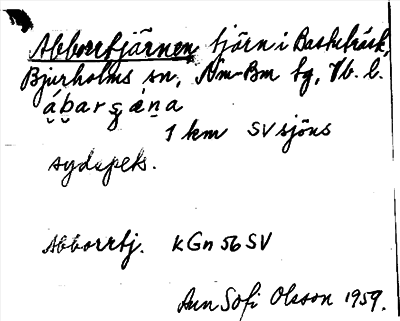 Abborrtjärnen tjörn i Bastuträsk,
Bjurholms sn, Nm-Bm tg, Vb. l.
1 km SV sjöns
sydspets.
Abborrtj. KGn 56 SV
Ann Sofi Olsson 1959.